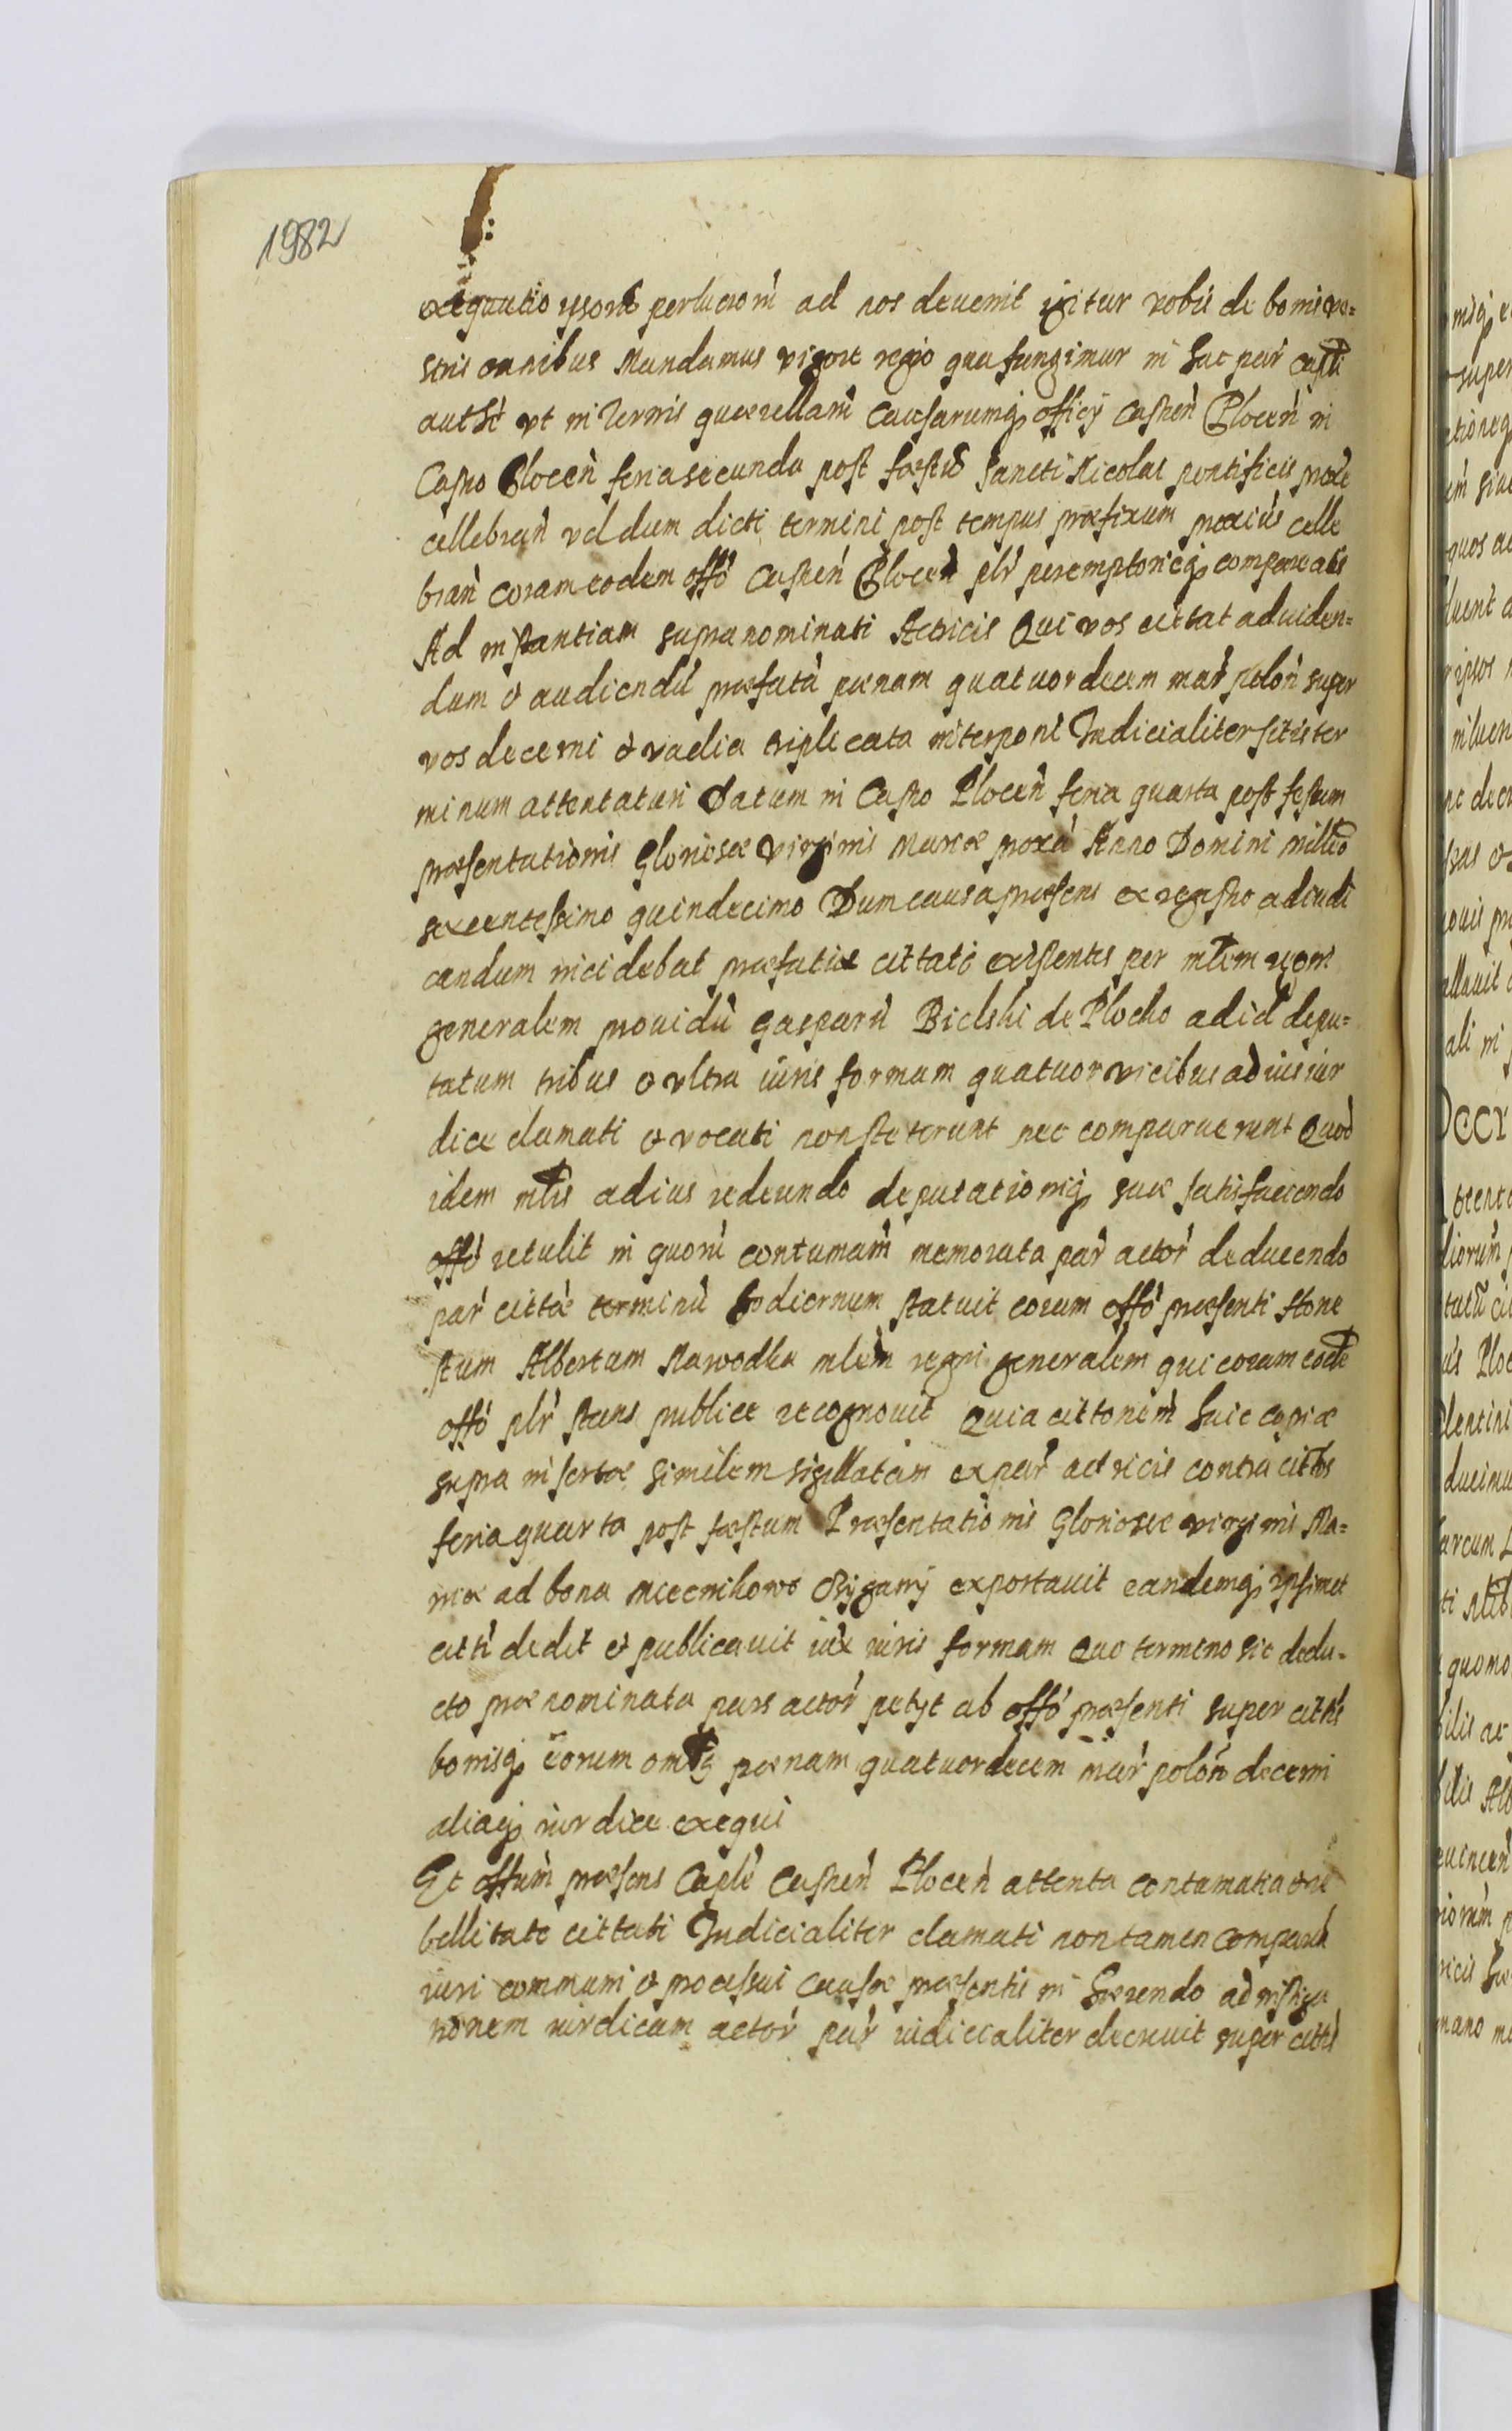 1982
exequutio ipsorũ perlucrorũ ad nos devenit igitur vobis de bonisq ve=
stris omnibus Mandamus vigore regio qua fungimur in hac par castri
autht̃e vt in termis quaerellarũ causarumq officij Castren̄ Plocen̄ in
Castro Plocen̄ feria secunda post faestũ Sancti Nicolai pontificis proxe
cellebran̄ vel dum dicti termini post tempus praefixum proxiūs celle
bran̄ coram eodem offo Castren̄ Plocen̄ plr̄ peremptorieq compareatis
Ad instantiam supranominati Actricis Qui vos cittat ad viden=
dum et audiendũ praefatã paenam quatuordecem mar̄ polon̄ super
vos decerni et vadia triplicata interponi Judicialiter sitis ter
minum attentaturi Datum in Castro Plocen̄ feria quarta post festum
praesentationis Gloriosae virginis Mariae proxã Anno Domini millmo
sexcentessimo quindecimo Dum causa praesens ex regestro adiudi
candum incidebat praefati cittati existentes per mlem regni
generalem providũ Gasparũ Bielski de Plocko ad id depu=
tatum tribus et vltra iuris formam quatuor vicibus ad ius iur
dice clamati et vocati non steterunt nec comparuerunt Quod
idem mlis ad ius redeundo deputationiq suae satisfaciendo
offo retulit in quorũ contumam̄ memorata par̄ actor̄ deducendo
par̄ cittae terminũ hodiernum statuit coram offo praesenti Hone
stum Albertum Nawodka mlem regni generalem qui coram eodẽ
offo plr̄ stans publice recognovit Quia cittonem̄ huic copiae
supra insertae similem sigillatam ex par̄ actricis contra cittos
feria quarta post faestum Praesentationis Gloriosae virginis Ma=
riae ad bona exportavit eandemq ipsimet
citti dedit et publicavit iux iuris formam Quo termino sic dedu=
cto praenominata pars actor̄ petijt ab offo praesenti super cittis
bonisq eorum omibq paenam quatuordecem mar̄ polon̄ decerni
aliaq iurdice exequi
Et offum̄ praesens Caplē Castren̄ Plocen̄ attenta contumatia et re
bellitate cittati Judicialiter clamati non tamen comparen̄
iuri communi et processui causae praesentis in haerendo ad instiga
tionem iurdicam actor̄ par̄ iudicialiter decrevit super cittis